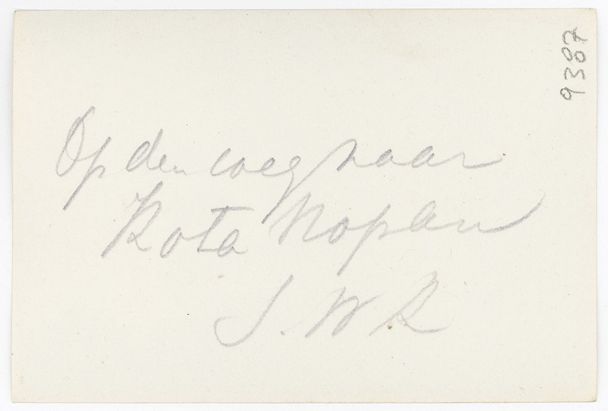 Op den weg naar
Kota Nopan
S.W.K
9387